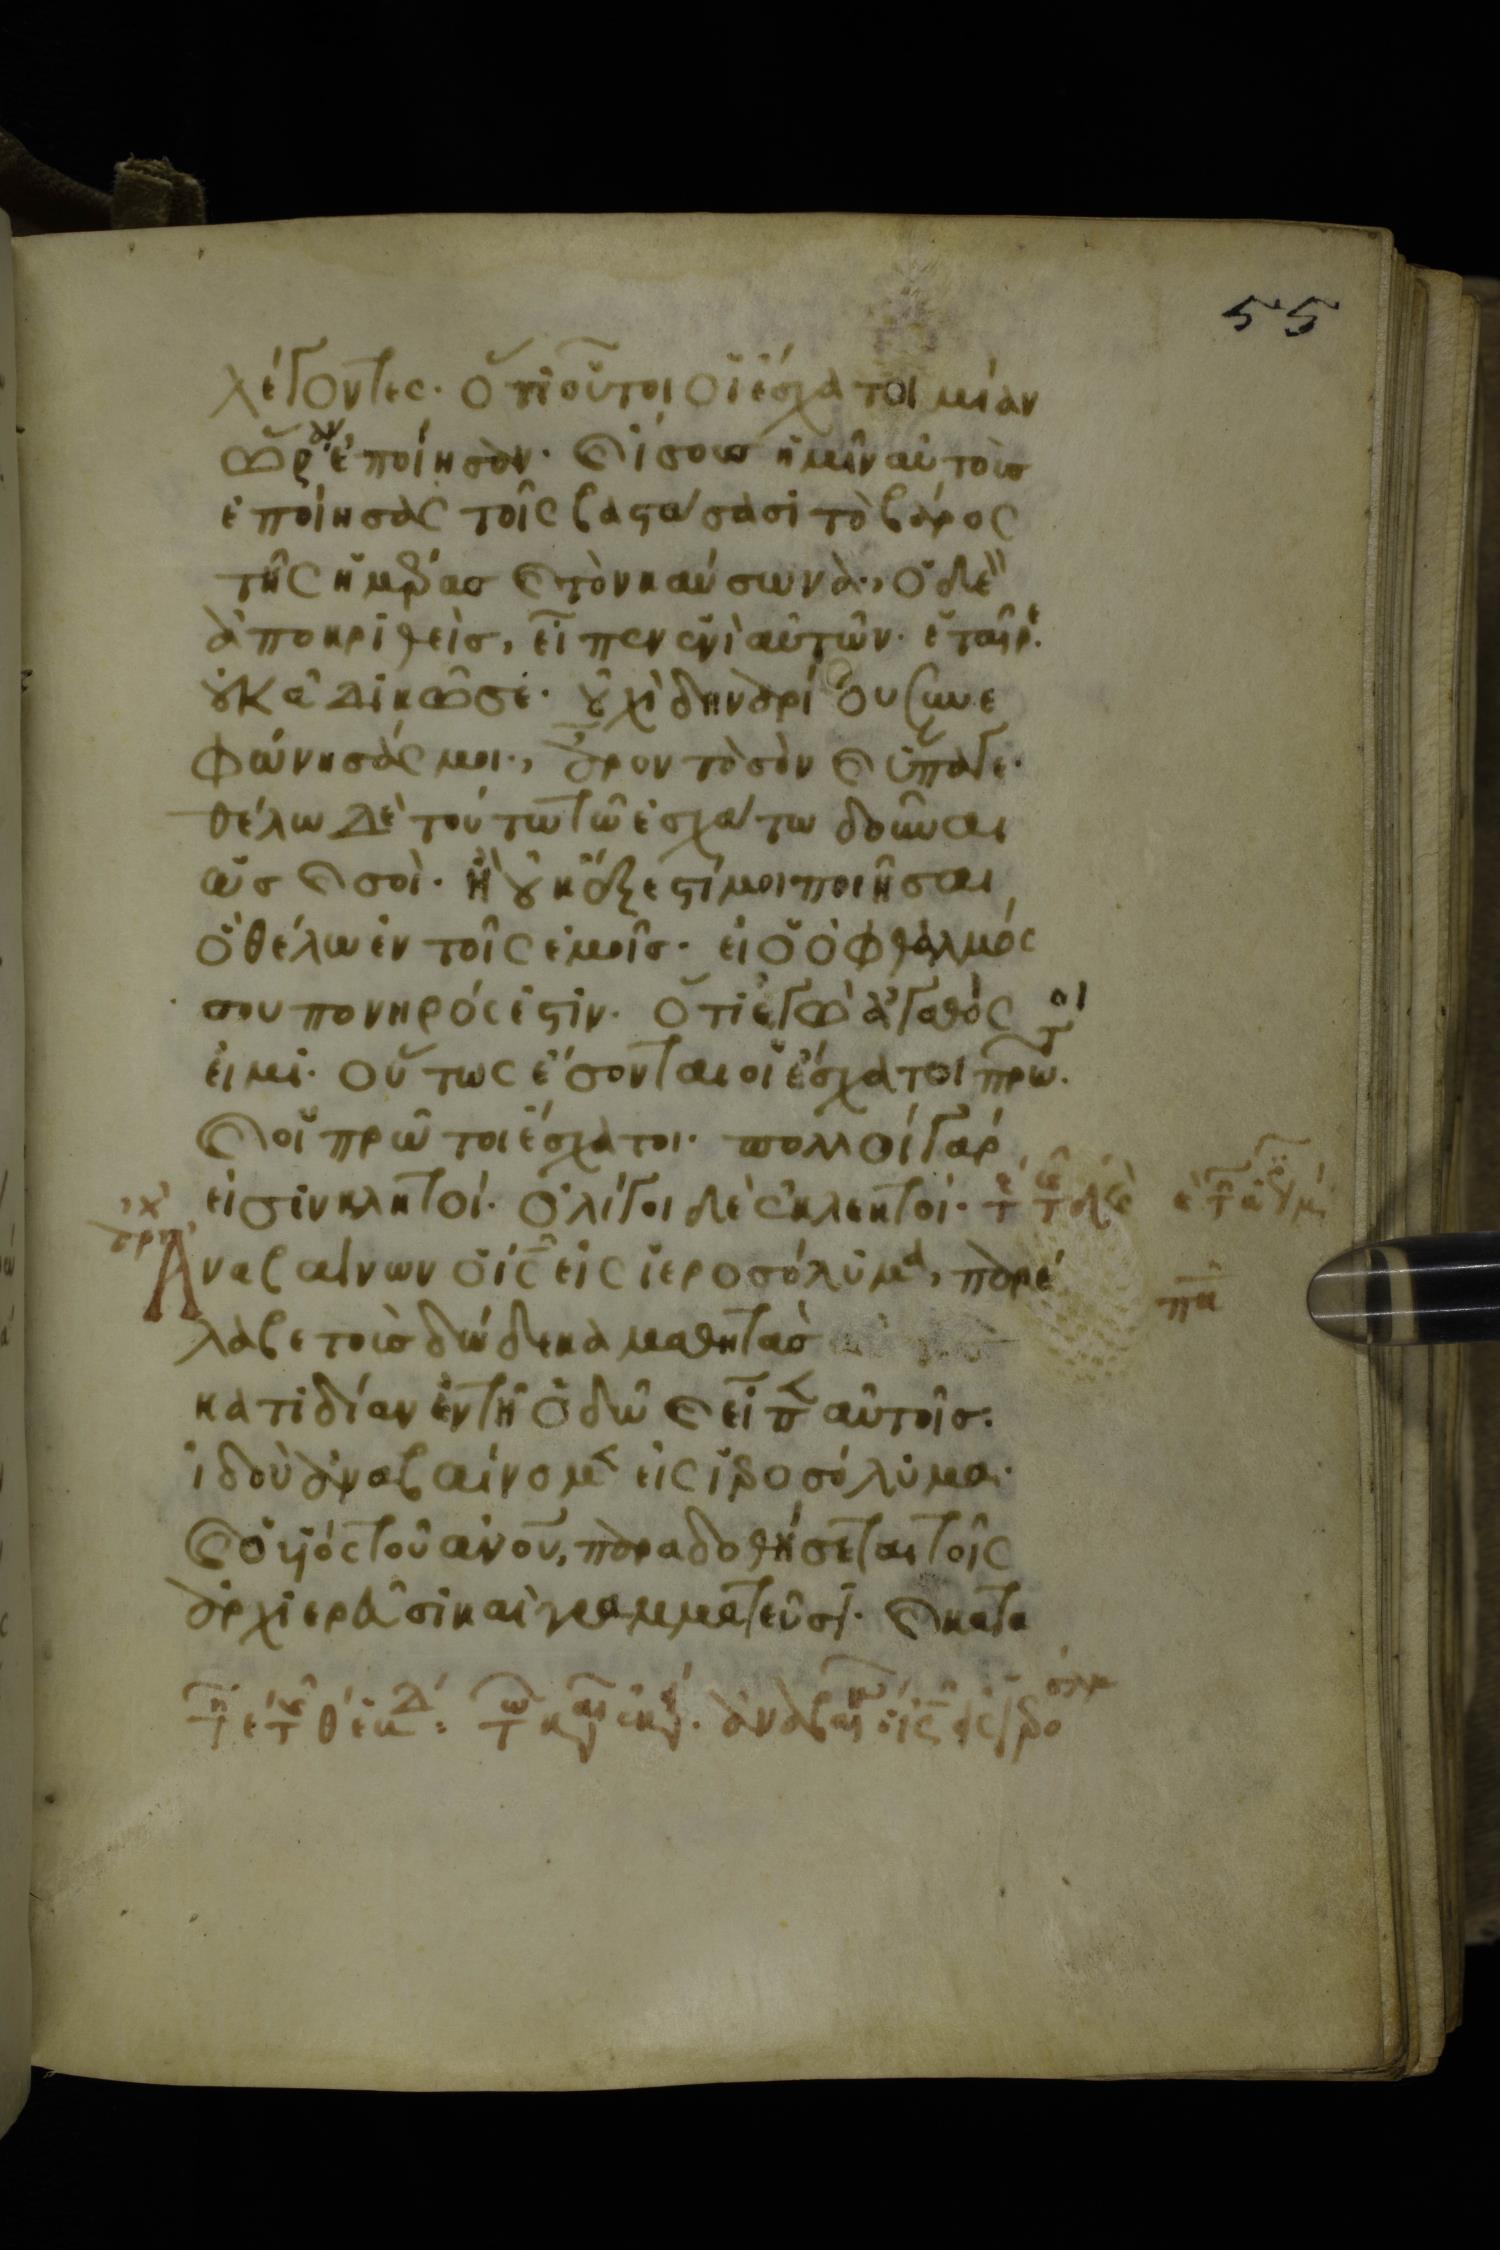 55
λέγοντες· ὅτι οὗτοι οἱ ἔσχατοι μίαν
ὥραν ἐποίησαν· καὶ ἴσους ἡμῖν αὐτοὺς
ἐποίησας τοῖς βαστάσασι τὸ βάρος
τῆς ἡμέρας καὶ τὸν καύσωνα· ὁ δὲ
ἀποκριθεὶς, εἶπεν ἑνὶ αὐτῶν· ἑταῖρε·
οὐκ ἀδικῶ σε· οὐχὶ δηναρίου συνε
φώνησάς μοι· ἆρον τὸ σὸν καὶ ὕπαγε·
θέλω δὲ τούτω τῶ ἐσχάτω δοῦναι
ὡς καὶ σοί· ἢ οὐκ ἔξεστί μοι ποιῆσαι
ὃ θέλω ἐν τοῖς ἐμοῖς· εἰ ὁ ὀφθαλμός
σου πονηρός ἐστιν· ὅτι ἐγὼ ἀγαθός
εἰμι· οὕτως ἔσονται οἱ ἔσχατοι πρῶτοι·
καὶ οἱ πρῶτοι ἔσχατοι· πολλοὶ γάρ
εἰσιν κλητοί· ὀλίγοι δὲ ἐκλεκτοί·
Ἀναβαίνων ὁ ις εἰς ἱεροσόλυμα, παρέ
λαβε τοὺς δώδεκα μαθητὰς
κατιδίαν ἐν τῆ ὁδῶ καὶ εἶπεν αὐτοῖς·
ἰδοὺ ἀναβαίνομεν εἰς ἱεροσόλυμα·
καὶ ὁ υἱὸς τοῦ ανου, παραδοθήσεται τοῖς
ἀρχιερεῦσι καὶ γραμματεῦσι· καὶ κατα